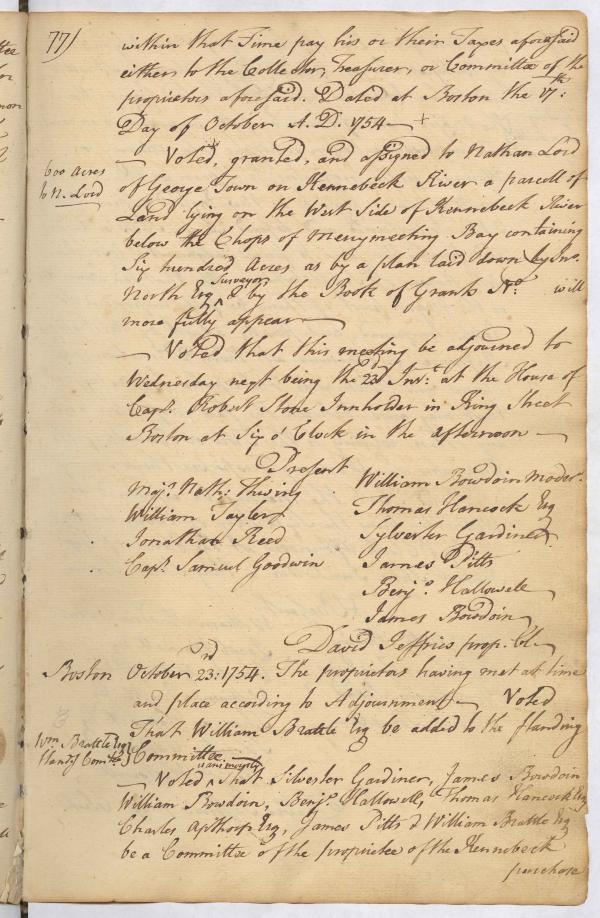 77)
within that Time pay his or their Taxes aforesaid
eithers to the Collector, Treasurer, or Committee of the
proprietors aforesaid. Dated at Boston the 17th:
Day of October A. D. 1754 — +
600 Acres
to N. Lord
— Voted, granted, and assigned to Nathan Lord
of George Town on Kennebeck River a parcell of
Land lying on the West Side of Kennebeck River
below the Chops of Merrymeeting Bay containing
Six hundred Acres as by a plan laid down by Jno.
North Esq Surveyor & by the Book of Grants No. will
more fully appear —
— Voted that this meeting be adjourned to
Wednesday next being the 23d Inst. at the House of
Capt. Robert Stone Innholder in King Street
Boston at Six o' Clock in the afternoon —
Present
Majr. Nath: Thwing
William Tayler
Jonathan Reed
Capt. Samuel Goodwin
William Bowdoin Moder.
Thomas Hancock Esq
Sylvester Gardiner
James Pitts
Benjo. Hallowell
James Bowdoin
David Jeffries prop. Cl.
Boston October 23rd: 1754. The proprietors having met at time
and place according to Adjournment — Voted
That William Brattle Esq be added to the standing
Wm. Brattle Esq
Standg Comtte.
Committee.
— Voted unanimously That Silvester Gardiner, James Bowdoin
William Bowdoin, Benjo. Hallowell, Thomas Hancock Esq
Charles Apthorp Esq, James Pitts & William Brattle Esq
be a Committee of the proprietee of the Kennebeck
purchase